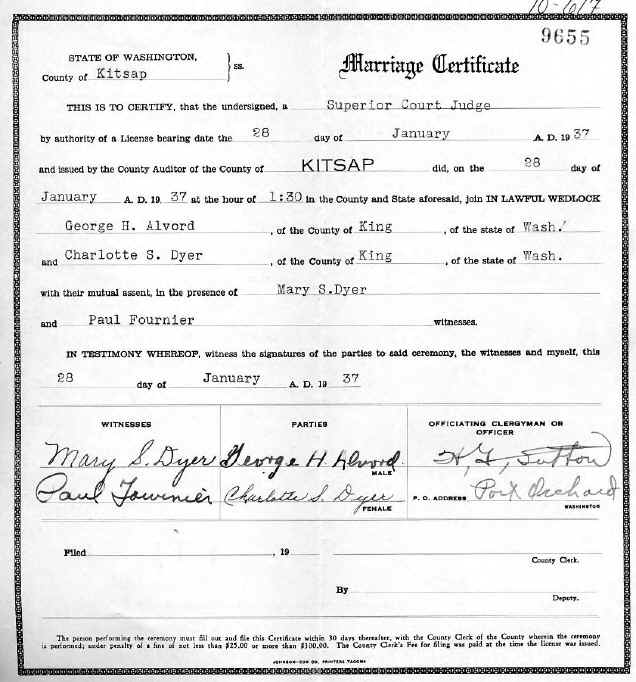 10-617
9655
STATE OF WASHINGTON,
County of Kitsap
ss.
Marriage Certificate
THIS IS TO CERTIFY, that the undersigned, a Superior Court Judge
by authority of a License bearing date the 28 day of January A. D. 19 37
and issued by the County Auditor of the County of KITSAP did, on the 28 day of
January A. D. 19 37 at the hour of 1:30 in the County and State aforesaid, join IN LAWFUL WEDLOCK
George H. Alvord , of the County of King , of the state of Wash.
and Charlotte S. Dyer , of the County of King , of the state of Wash.
with their mutual assent, in the presence of Mary S.Dyer
and Paul Fournier witnesses.
IN TESTIMONY WHEREOF, witness the signatures of the parties to said ceremony, the witnesses and myself, this
28 day of January A. D. 19 37
WITNESSES PARTIES OFFICIATING CLERGYMAN OR OFFICER
Mary S. Dyer George H. Alvord H. G. Sutton
MALE
Paul Fournier Charlotte S. Dyer P. O. ADDRESS Port Orchard
FEMALE WASHINGTON
Filed , 19
County Clerk.
By
Deputy.
The person performing the ceremony must fill out and file this Certificate within 30 days thereafter, with the County Clerk of the County wherein the ceremony
is performed; under penalty of a fine of not less than $25.00 or more than $100.00. The County Clerk's Fee for filing was paid at the time the license was issued.
JOHNSON-COX CO. PRINTERS, TACOMA